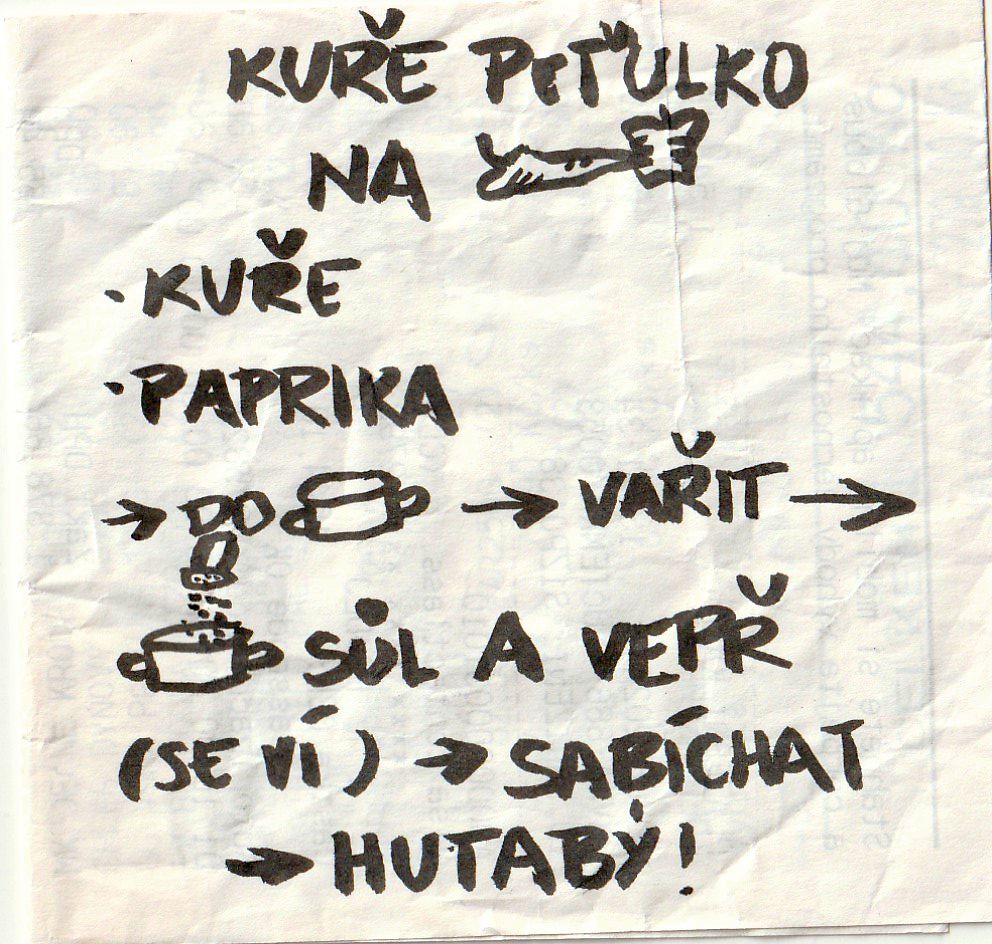 KUŘE PEŤULKO
NA
· KUŘE
· PAPRIKA
→ DO → VAŘIT →
SŮL A VEPŘ
(SE VÍ) → SABÍCHAT
→ HUTABÝ!